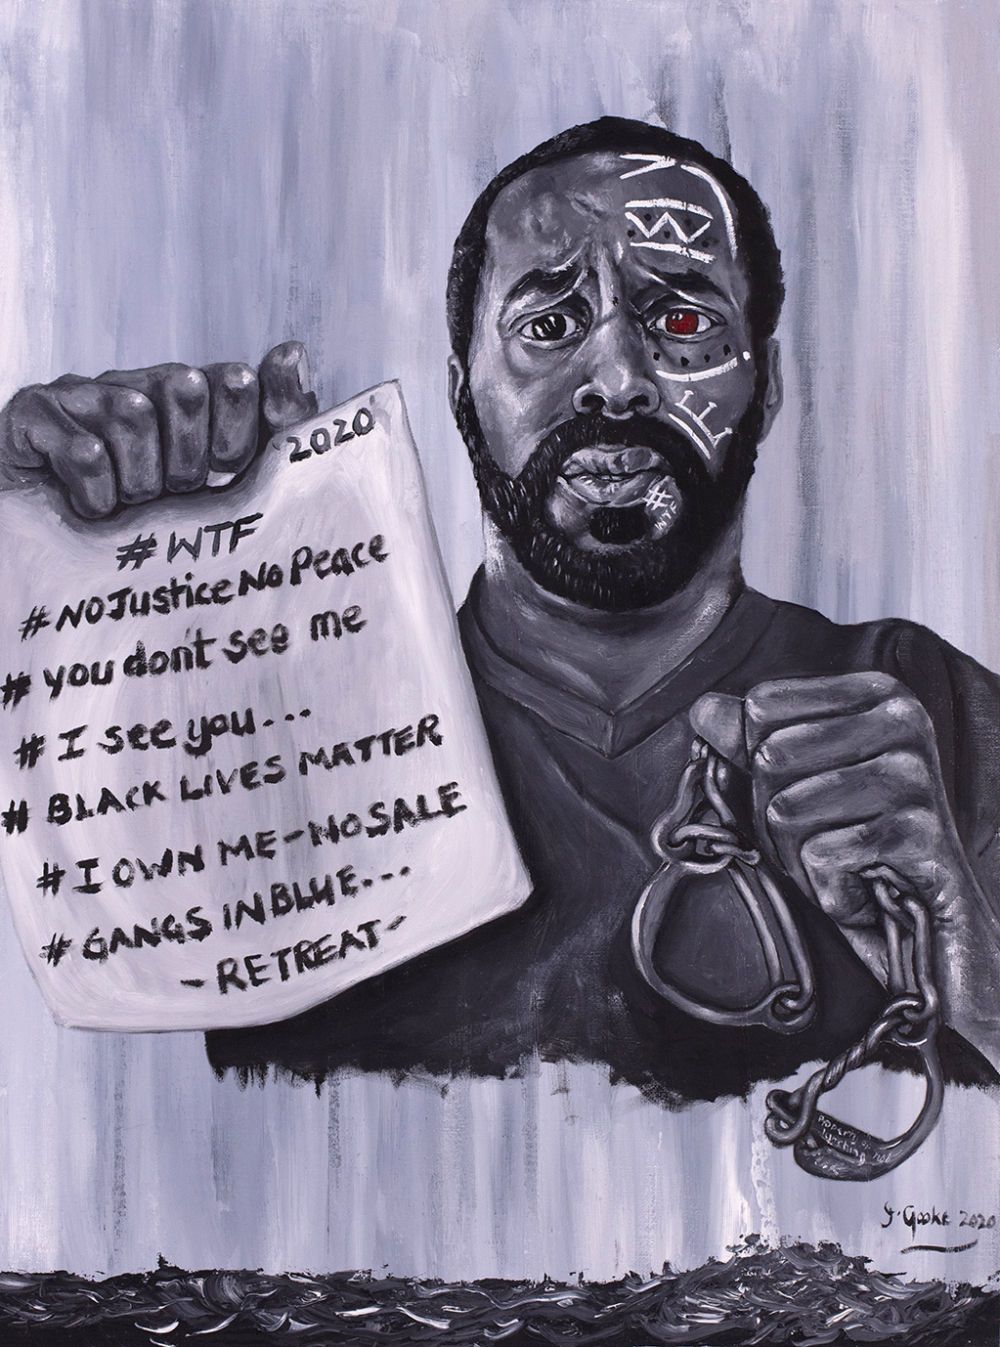 2020
#WTF
#NOJusticeNoPeace
# you don't see me
# I see you...
# BLACK LIVES MATTER
# I OWN ME-NOSALE
# GANGS IN BLUE...
-RETREAT-
#
WTF
Property of
lynching
2020